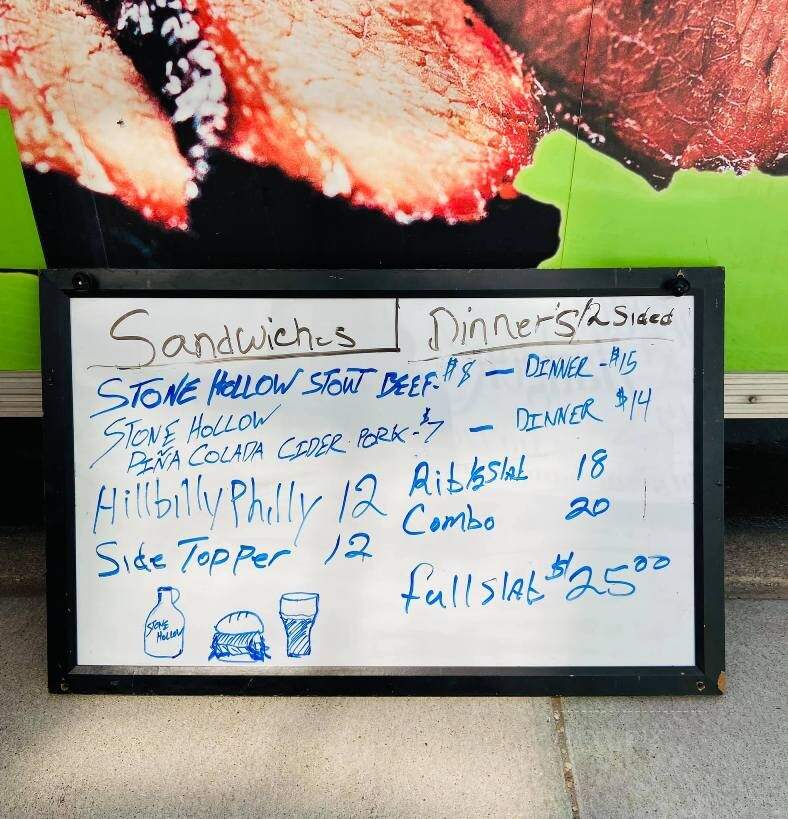 Sandwiches
Dinner's/2 Sided
STONE HOLLOW STOUT BEEF-$8 — DINNER -$15
STONE HOLLOW
PIÑA COLADA CIDER PORK-$7 — DINNER $14
Hillbilly Philly 12
Rib ½ Slab 18
Combo 20
Side Topper 12
full slab $25.00
STONE HOLLOW